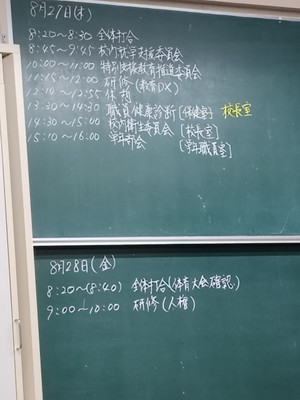 8月27日(木)
8:20~8:30 全体打合
8:45~9:45 校内就学支援委員会
10:00~11:00 特別支援教育推進委員会
11:15~12:00 研修(教育DX)
12:10~12:55 休憩
13:30~14:30 職員健康診断[保健室] 校長室
14:30~15:00 校内衛生委員会 [校長室]
15:10~16:00 学年部会 [学年職員室]
8月28日(金)
8:20~(8:40) 全体打合(体育大会確認)
9:00~10:00 研修(人権)